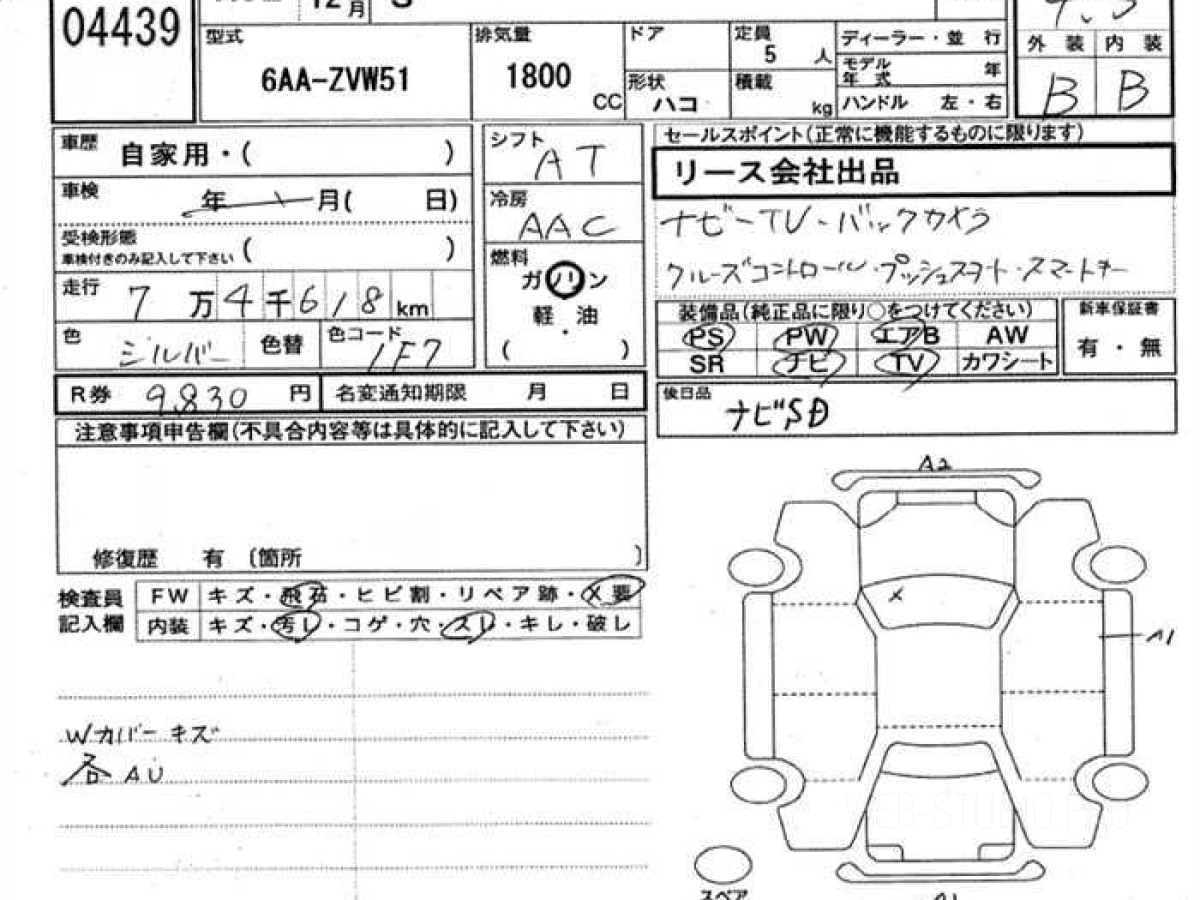 04439
12 月
S
型式
6AA-ZVW51
排気量
1800
CC
ドア
形状
ハコ
定員
5 人
積載
kg
ディーラー・並 行
モデル年 式 年
ハンドル 左・右
外 装 内 装
B B
車歴 自家用・( )
車検 年 月( 日)
受検形態
車検付きのみ記入して下さい ( )
走行 7 万 4 千 6 1 8 km
色 シルバー 色替 色コード 1F7
シフト AT
冷房 AAC
燃料
ガソリン
軽・油
( )
セールスポイント(正常に機能するものに限ります)
リース会社出品
ナビ-TV-バックカメラ
クルーズコントロール・プッシュスタート・スマートキー
装備品(純正品に限り○をつけてください)
PS PW エアB AW
SR ナビ TV カワシート
新車保証書
有・無
R券 9,830 円 名変通知期限 月 日
後日品
ナビSD
注意事項申告欄(不具合内容等は具体的に記入して下さい)
修復歴 有 〔箇所 〕
検査員
記入欄
FW キズ・飛石・ヒビ割・リペア跡・X要
内装 キズ・汚レ・コゲ・穴・スレ・キレ・破レ
Wカバー キズ
各 AU
A2
X
A1
スペア
WEB-STUDIO.PRO